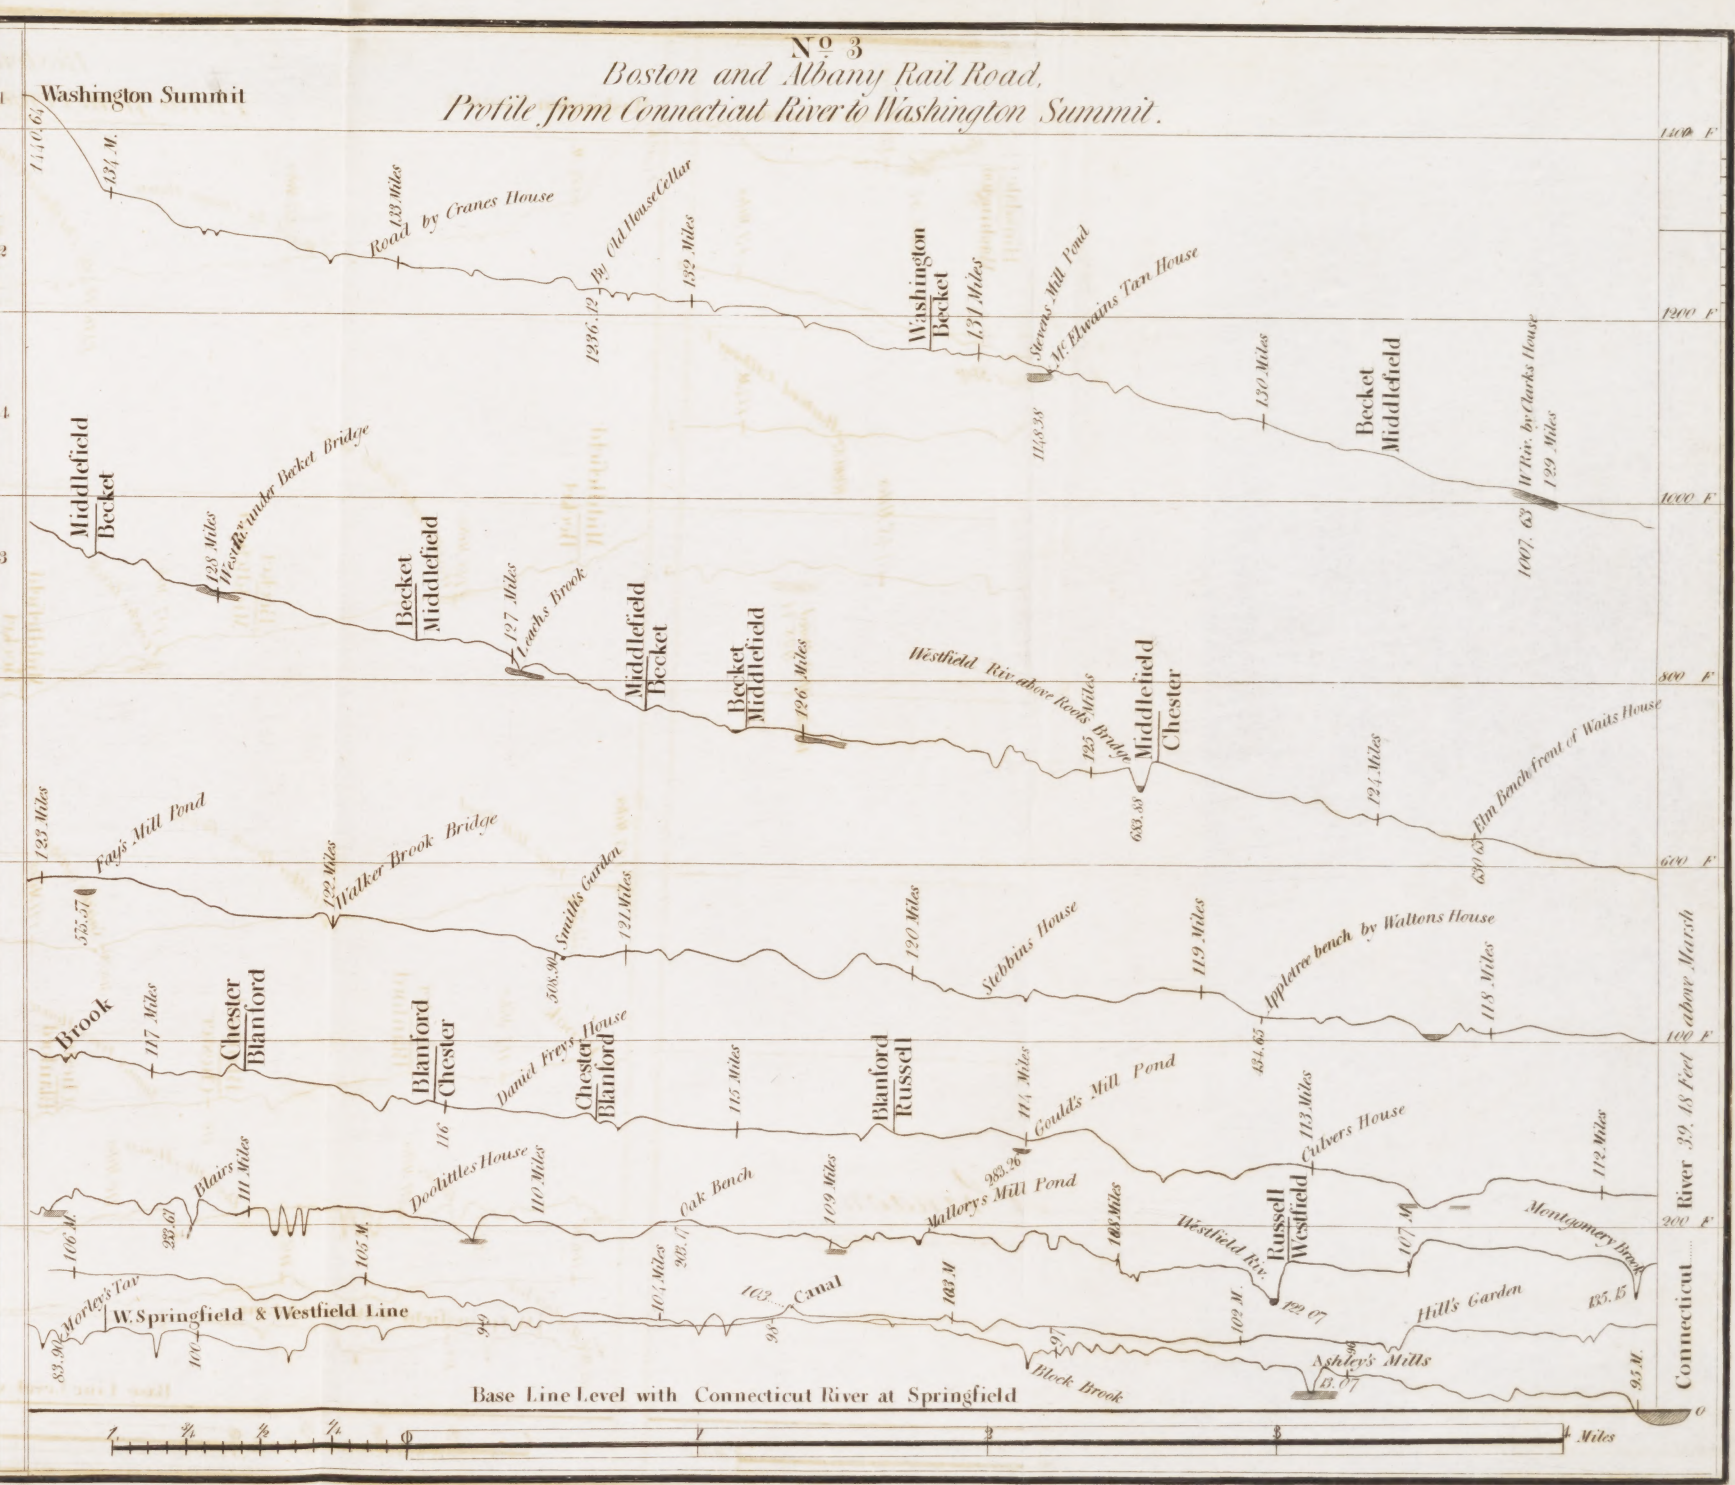 No 3
Boston and Albany Rail Road,
Profile from Connecticut River to Washington Summit.
Washington Summit
1440.64
134 M.
133 Miles
Road by Cranes House
By Old House Cellar
1236.12
132 Miles
Washington
Becket
131 Miles
Stevens Mill Pond
Mc. Elwains Tan House
1148.38
130 Miles
Becket
Middlefield
W Riv. by Clarks House
129 Miles
1007.63
1400 F
1200 F
1000 F
800 F
600 F
400 F
200 F
0
Middlefield
Becket
128 Miles
West Riv. under Becket Bridge
Becket
Middlefield
127 Miles
Leachs Brook
Middlefield
Becket
Becket
Middlefield
126 Miles
Westfield Riv. above Roots Bridge
125 Miles
683.88
Middlefield
Chester
124 Miles
Elm Bench front of Waits House
630.65
123 Miles
Fay's Mill Pond
575.57
122 Miles
Walker Brook Bridge
Smith's Garden
508.90
121 Miles
120 Miles
Stebbins House
119 Miles
Appletree bench by Waltons House
434.65
118 Miles
Brook
117 Miles
Chester
Blanford
Blanford
Chester
116
Daniel Freys House
Chester
Blanford
115 Miles
Blanford
Russell
114 Miles
Gould's Mill Pond
283.26
113 Miles
Culvers House
112 Miles
Blairs
111 Miles
233.61
Doolittles House
110 Miles
Oak Bench
205.17
109 Miles
Mallory's Mill Pond
108 Miles
Westfield Riv.
122.07
Russell
Westfield
107 M
Montgomery Brook
135.15
106 M.
105 M.
104 Miles
103 M
102 M.
Hill's Garden
Morley's Tav
83.90
W. Springfield & Westfield Line
100
99
103
Canal
98
97
Block Brook
96
Ashley's Mills
13.07
95 M.
Connecticut River 39.18 Feet above Marsh
Base Line Level with Connecticut River at Springfield
1 3/4 1/2 1/4 0 1 2 3 4 Miles